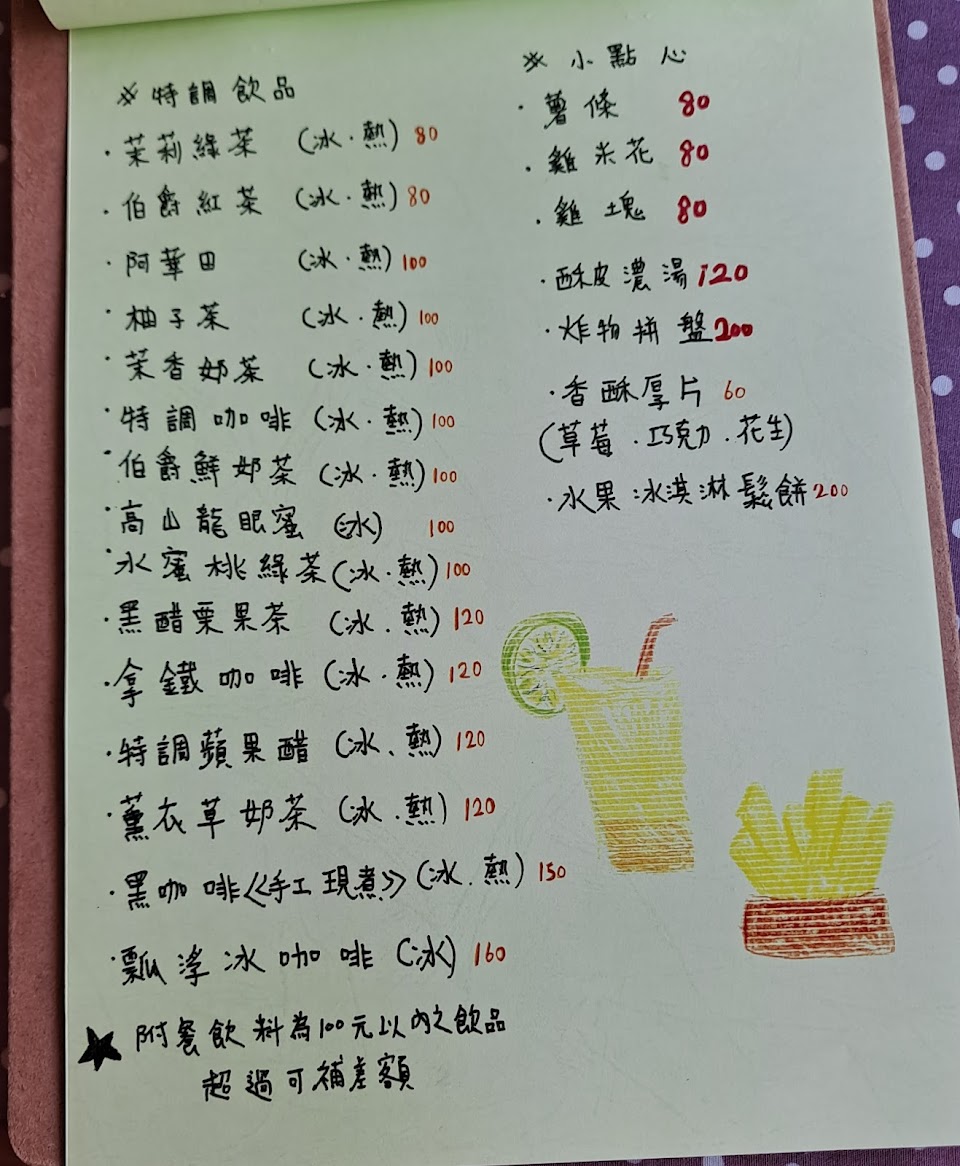 ※特調飲品
·茉莉綠茶 (冰·熱) 80
·伯爵紅茶 (冰·熱) 80
·阿華田 (冰·熱) 100
·柚子茶 (冰·熱) 100
·茉香奶茶 (冰·熱) 100
·特調咖啡 (冰·熱) 100
·伯爵鮮奶茶 (冰·熱) 100
·高山龍眼蜜 (冰) 100
·水蜜桃綠茶 (冰·熱) 100
·黑醋栗果茶 (冰.熱) 120
·拿鐵咖啡 (冰·熱) 120
·特調蘋果醋 (冰、熱) 120
·薰衣草奶茶 (冰.熱) 120
·黑咖啡《手工現煮》(冰.熱) 150
·瓢浮冰咖啡 (冰) 160
★附餐飲料為100元以內之飲品
超過可補差額
※小點心
·薯條 80
·雞米花 80
·雞塊 80
·酥皮濃湯 120
·炸物拼盤 200
·香酥厚片 60
(草莓.巧克力.花生)
·水果冰淇淋鬆餅 200